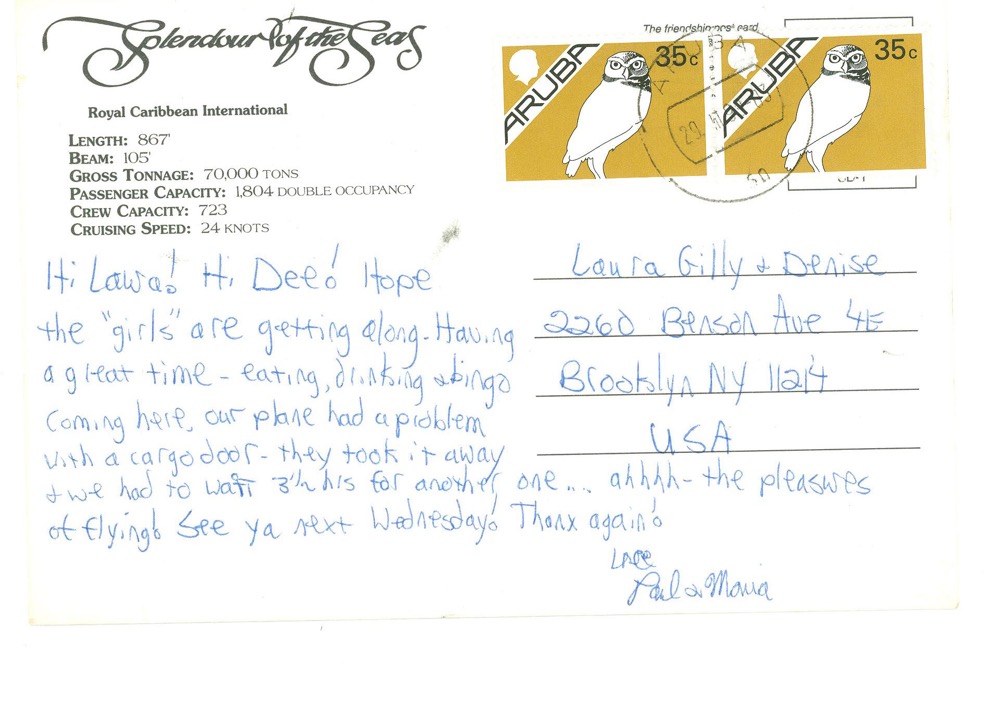 Splendour of the Seas
Royal Caribbean International
LENGTH: 867'
BEAM: 105'
GROSS TONNAGE: 70,000 TONS
PASSENGER CAPACITY: 1,804 DOUBLE OCCUPANCY
CREW CAPACITY: 723
CRUISING SPEED: 24 KNOTS
The friendship post card
ARUBA 35c
ARUBA 35c
ARUBA
Hi Laura! Hi Dee! Hope
the "girls" are getting along. Having
a great time - eating, drinking & bingo
Coming here, our plane had a problem
with a cargo door - they took it away
& we had to wait 3½ hrs for another one... ahhhh - the pleasures
of flying! See ya next Wednesday! Thanx again!
Love
Paul & Maria
Laura Gilly & Denise
2260 Benson Ave 4E
Brooklyn NY 11214
USA